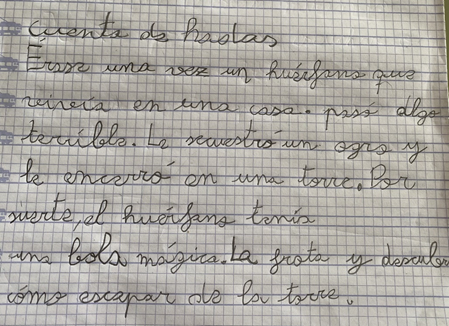 cuento de hadas
Érase una vez un huérfano que
vivía en una casa. pasó algo
terrible. Le secuestró un ogro y
le encerró en una torre. Por
suerte, el huérfano tenía
una bola mágica. La frota y descubre
cómo escapar de la torre.